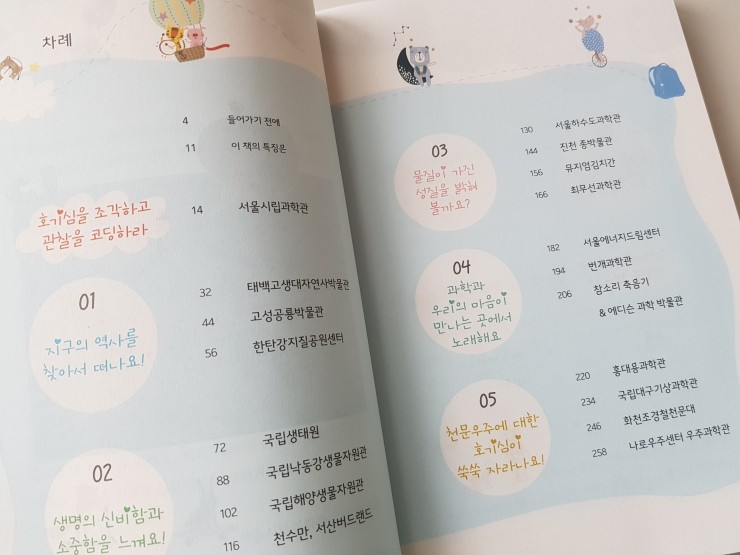 차례
4 들어가기 전에
11 이 책의 특징은
호기심을 조각하고
관찰을 코딩하라
14 서울시립과학관
01
지구의 역사를
찾아서 떠나요!
32 태백고생대자연사박물관
44 고성공룡박물관
56 한탄강지질공원센터
02
생명의 신비함과
소중함을 느껴요!
72 국립생태원
88 국립낙동강생물자원관
102 국립해양생물자원관
116 천수만, 서산버드랜드
03
물질이 가진
성질을 밝혀
볼까요?
130 서울하수도과학관
144 진천 종박물관
156 뮤지엄김치간
166 최무선과학관
04
과학과
우리의 마음이
만나는 곳에서
노래해요
182 서울에너지드림센터
194 번개과학관
206 참소리 축음기
& 에디슨 과학 박물관
05
천문우주에 대한
호기심이
쑥쑥 자라나요!
220 홍대용과학관
234 국립대구기상과학관
246 화천조경철천문대
258 나로우주센터 우주과학관